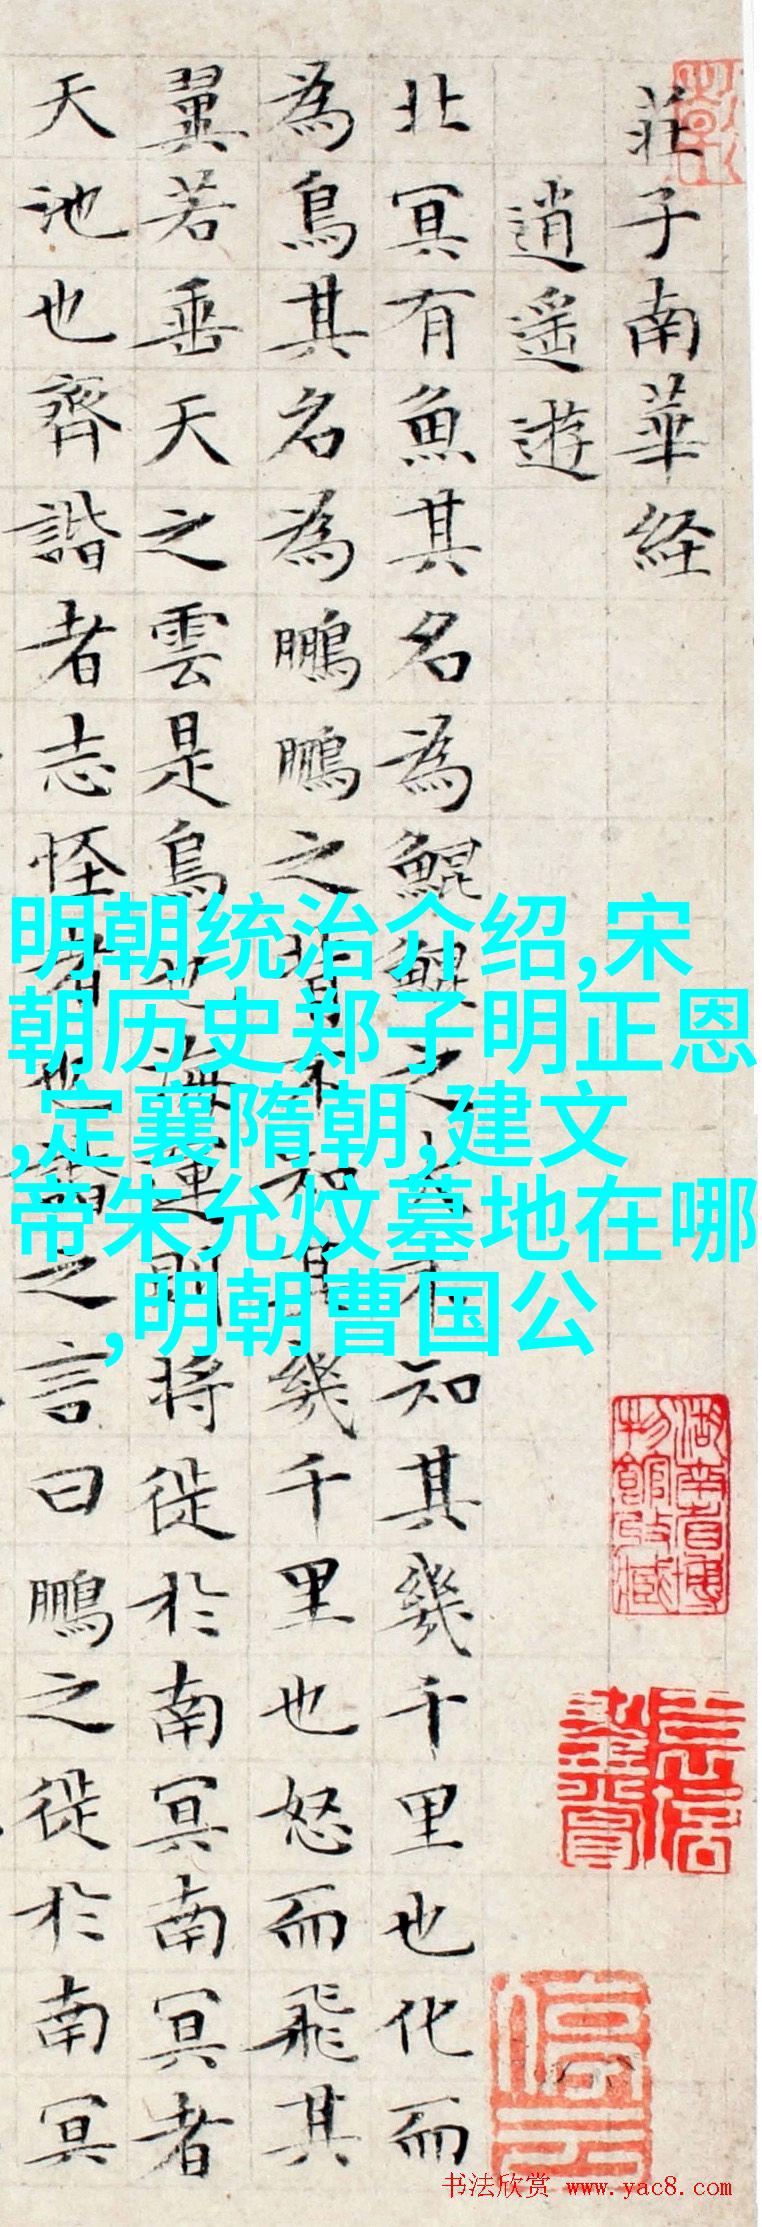 莊子南華経
逍遥遊
北冥有魚其名為鯤鯤之大不知其幾千里也化而
為鳥其名為鵬鵬之背不知其幾千里也怒而飛其
翼若垂天之雲是鳥也海運則将徙於南冥南冥者
天池也齊諧者志怪者也諧之言曰鵬之徙於南冥
明朝统治介绍,宋
朝历史郑子明正恩
,定襄隋朝,建文
帝朱允炆墓地在哪
,明朝曹国公
湖南省博
物館收藏
书法欣赏 www.yac8.com